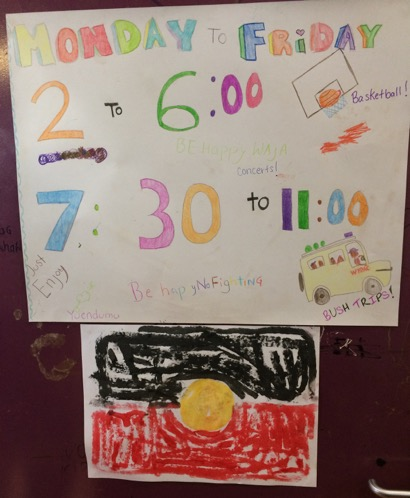 MONDAY TO FRiDAY
2 TO 6:00
Basketball!
BE Happy WAJA
Concerts!
7:30 to 11:00
Just
Enjoy
Be happy No Fighting
Yuendumu
BUSH TRIPS!